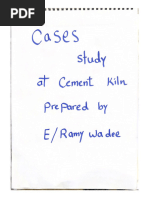 Cases
study
at Cement Kiln
Prepared by
E/Ramy Wadee